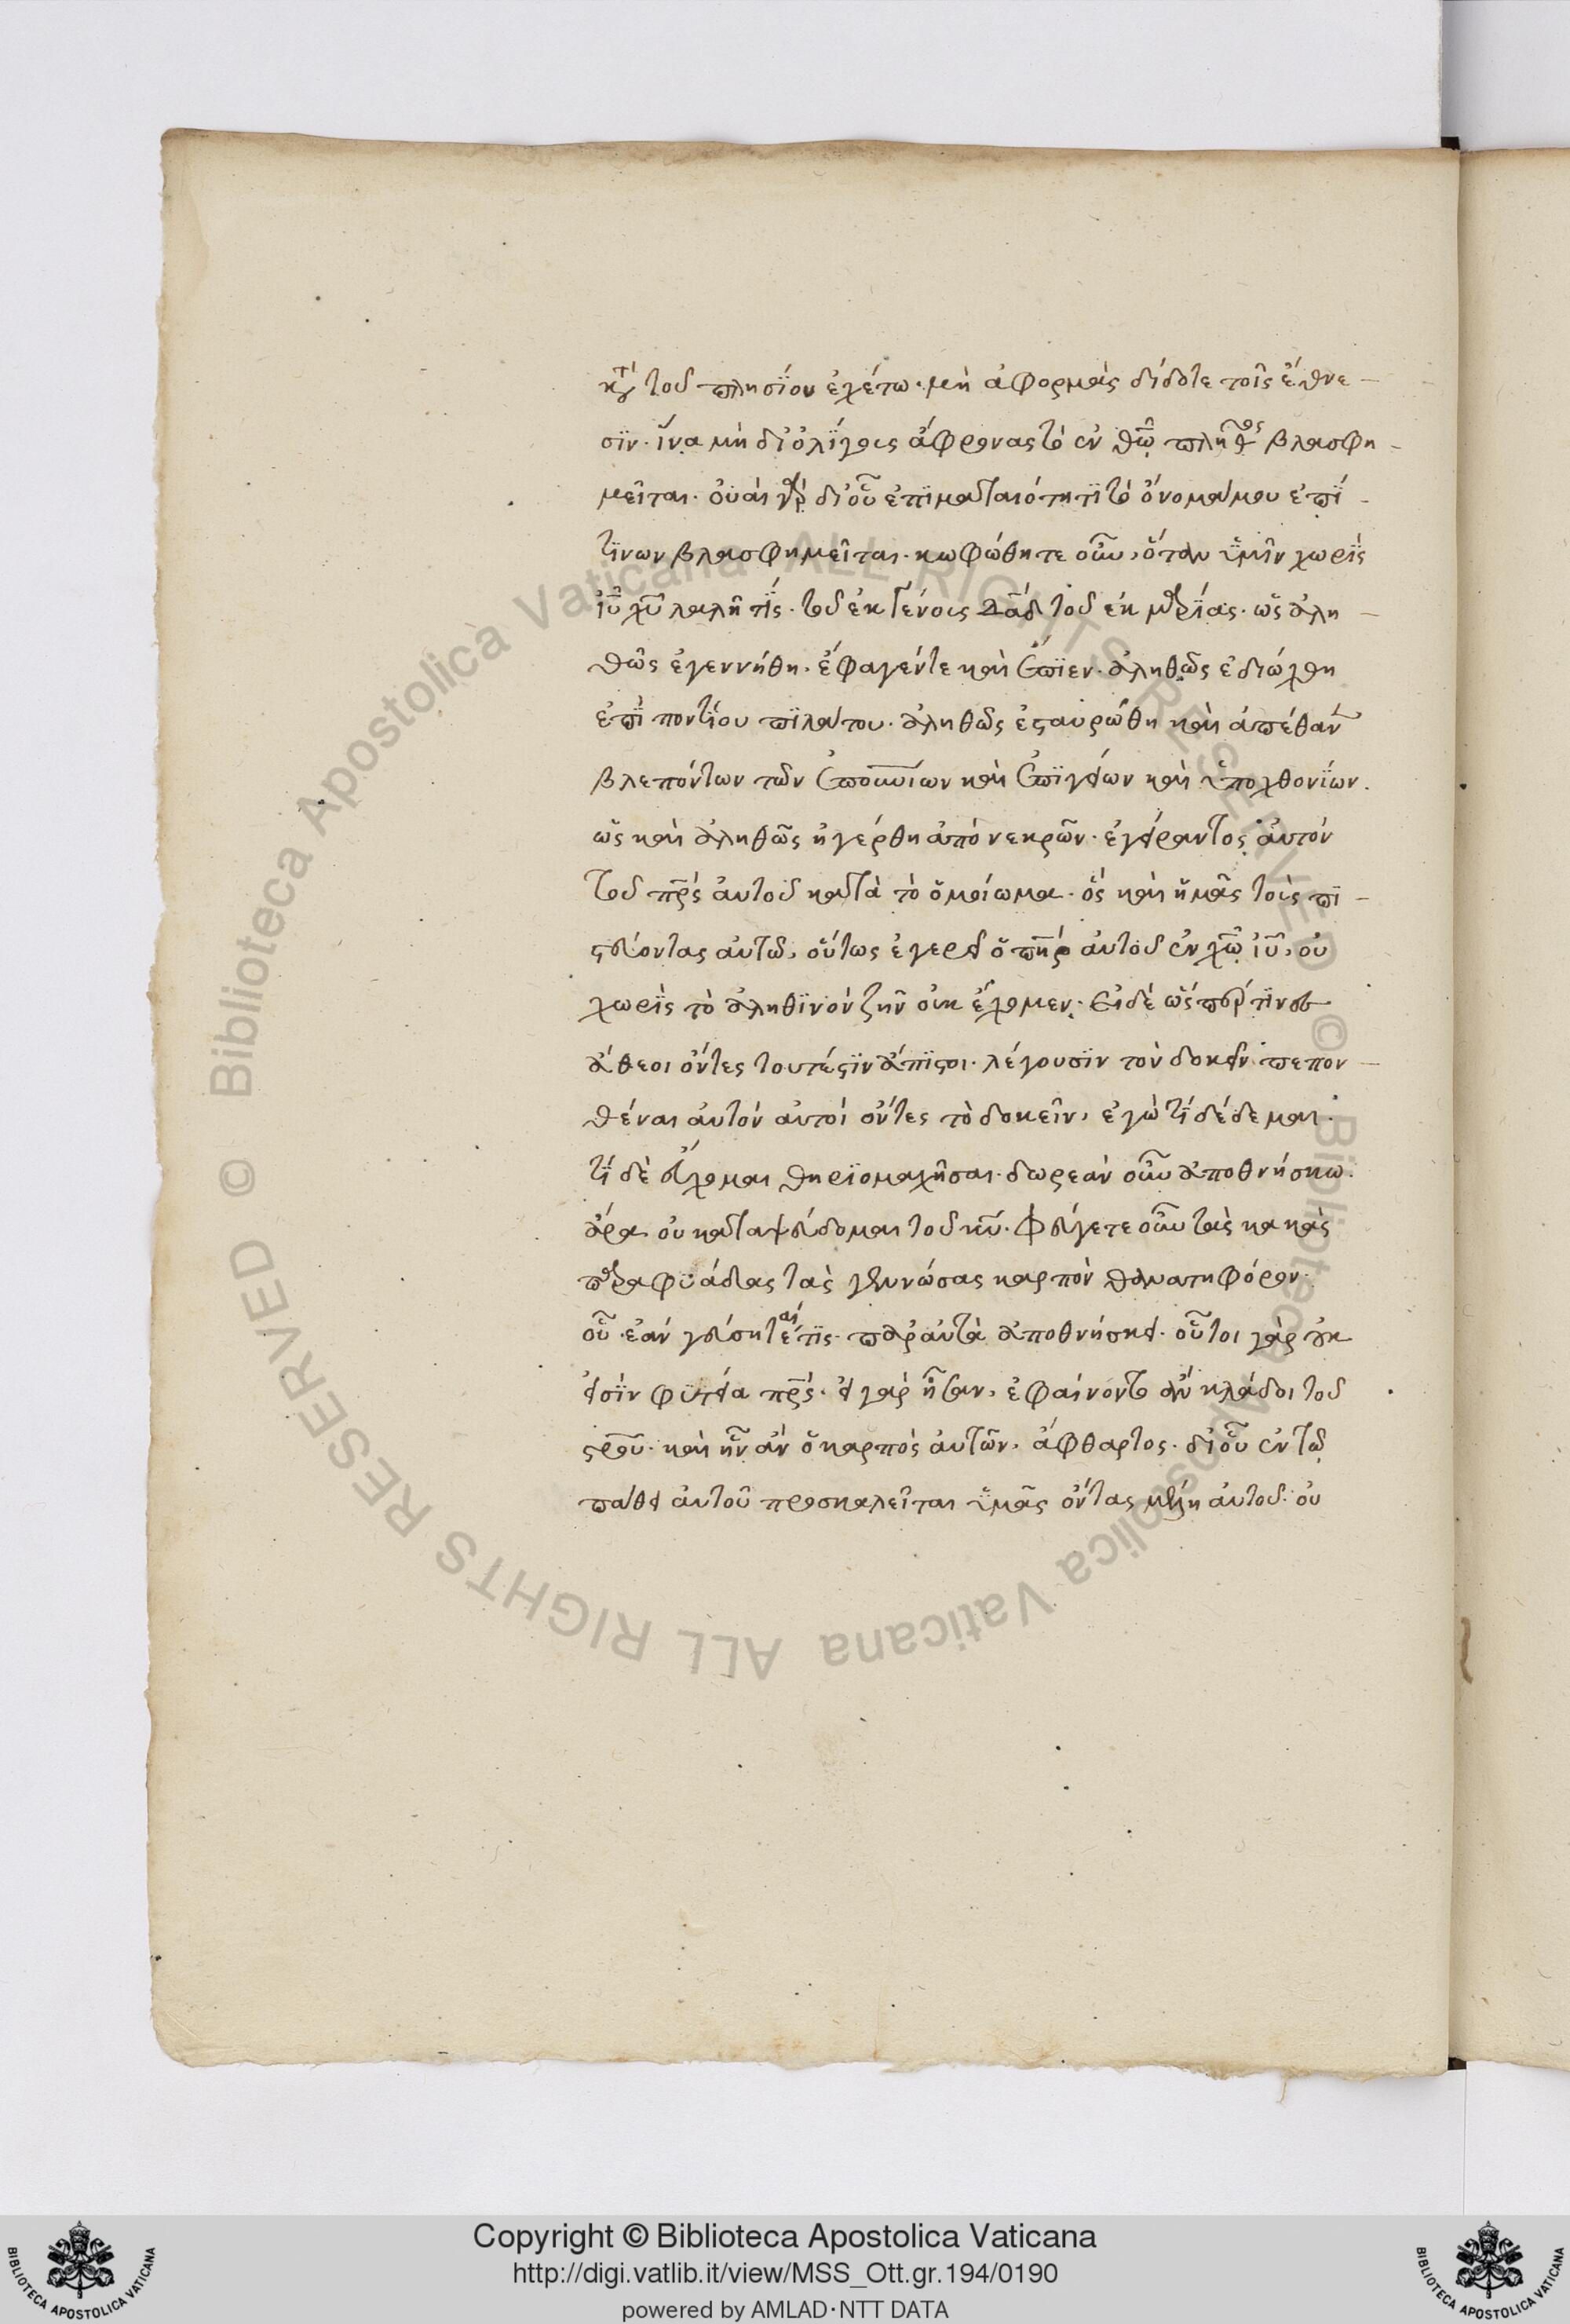 κατὰ τοῦ πλησίον ἐχέτω· μὴ ἀφορμὰς δίδοτε τοῖς ἔθνε-
σϊν· ἵνα μὴ δι' ὀλίγους ἄφρονας τὸ ἐν θῶ πλῆθος βλασφη-
μεῖται· οὐαὶ γὰρ δι' οὗ ἐπὶ ματαιότητϊ τὸ ὄνομά μου ἐπΐ
τϊνων βλασφημεῖται· κωφώθητε οὖν, ὅταν ὑμῖν χωρὶς
ἰῦ χῦ λαλῆ τΐς· τοῦ ἐκ γένους δαδ τοῦ ἐκ μαρΐας· ὡς ἀλη-
θῶς ἐγεννήθη· ἔφαγέν τε καὶ ἔπϊεν· ἀληθῶς ἐδιώχθη
ἐπῒ ποντΐου πϊλάτου· ἀληθῶς ἐσταυρώθη καὶ ἀπέθαν
βλεπόντων τῶν ἐπουνίων καὶ ἐπϊγείων καὶ ὑποχθονΐων·
ὡς καὶ ἀληθῶς ἠγέρθη ἀπὸ νεκρῶν· ἐγείραντος αὐτὸν
τοῦ πρς αὐτοῦ κατὰ τὸ ὁμοίωμα· ὃς καὶ ἡμᾶς τοὺς πϊ-
στεύοντας αὐτῶ, οὕτως ἐγερεῖ ὁ πηρ αὐτοῦ ἐν χῶ ἰῦ, οὗ
χωρῒς τὸ ἀληθϊνὸν ζῆν οὐκ ἔχομεν· εἰ δὲ ὥς περ τϊνες
ἄθεοι ὄντες τουτέστϊν ἄπϊστοι· λέγουσϊν τὸν δοκεῖν πεπον-
θέναι αὐτὸν αὐτοὶ ὄντες τὸ δοκεῖν, ἐγὼ τΐ δέδεμαι·
τΐ δὲ εὔχομαι θηρϊομαχῆσαι· δωρεὰν οὖν ἀποθνήσκω·
ἄρα οὐ καταψεύδομαι τοῦ κῦ· φεύγετε οὖν τὰς κακὰς
παραφϋάδας τὰς γεννώσας καρπὸν θανατηφόρον·
οὗ ἐὰν γεύσηταί τϊς· παρ' αὐτὰ ἀποθνήσκει· οὗτοι γὰρ οὐκ
εἰσὶν φϋτεία πρς· εἰ γὰρ ἦσαν, ἐφαίνοντο ἂν κλάδοι τοῦ
στροῦ· καὶ ἦν ἂν ὁ καρπὸς αὐτῶν, ἄφθαρτος· δι' οὗ ἐν τῶ
πάθει αὐτοῦ προσκαλεῖται ὑμᾶς ὄντας μέλη αὐτοῦ· οὐ
Copyright © Biblioteca Apostolica Vaticana
http://digi.vatlib.it/view/MSS_Ott.gr.194/0190
powered by AMLAD·NTT DATA
© Biblioteca Apostolica Vaticana ALL RIGHTS RESERVED
© Biblioteca Apostolica Vaticana ALL RIGHTS RESERVED
BIBLIOTECA APOSTOLICA VATICANA
BIBLIOTECA APOSTOLICA VATICANA